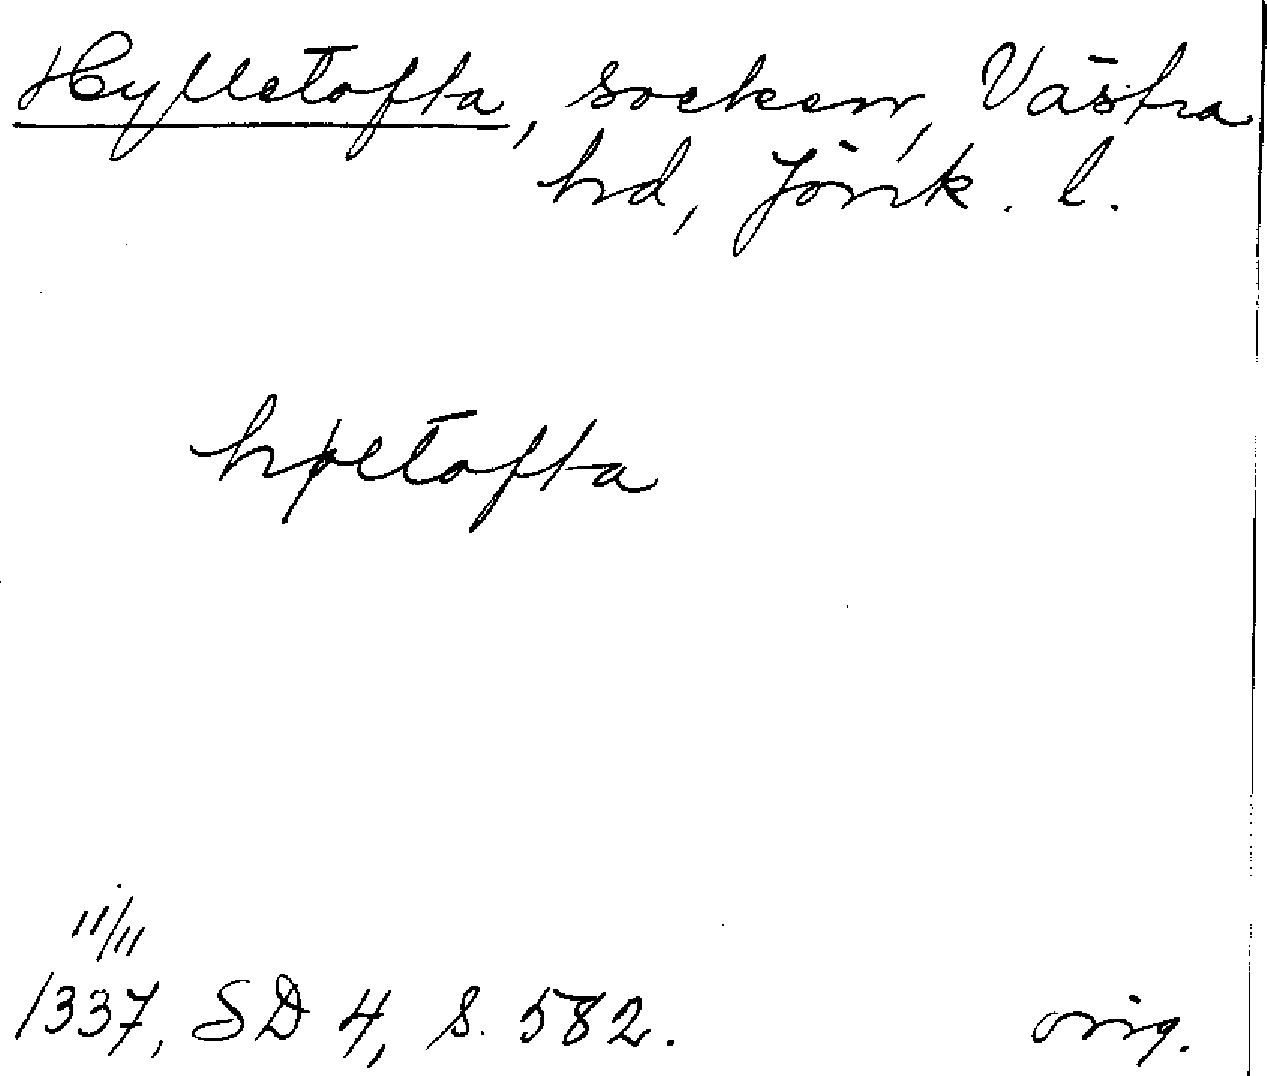 Hylletofta, socken, Västra
hd, Jönk. l.
hyltofta
11/11
1337, SD 4, s. 582.
orig.